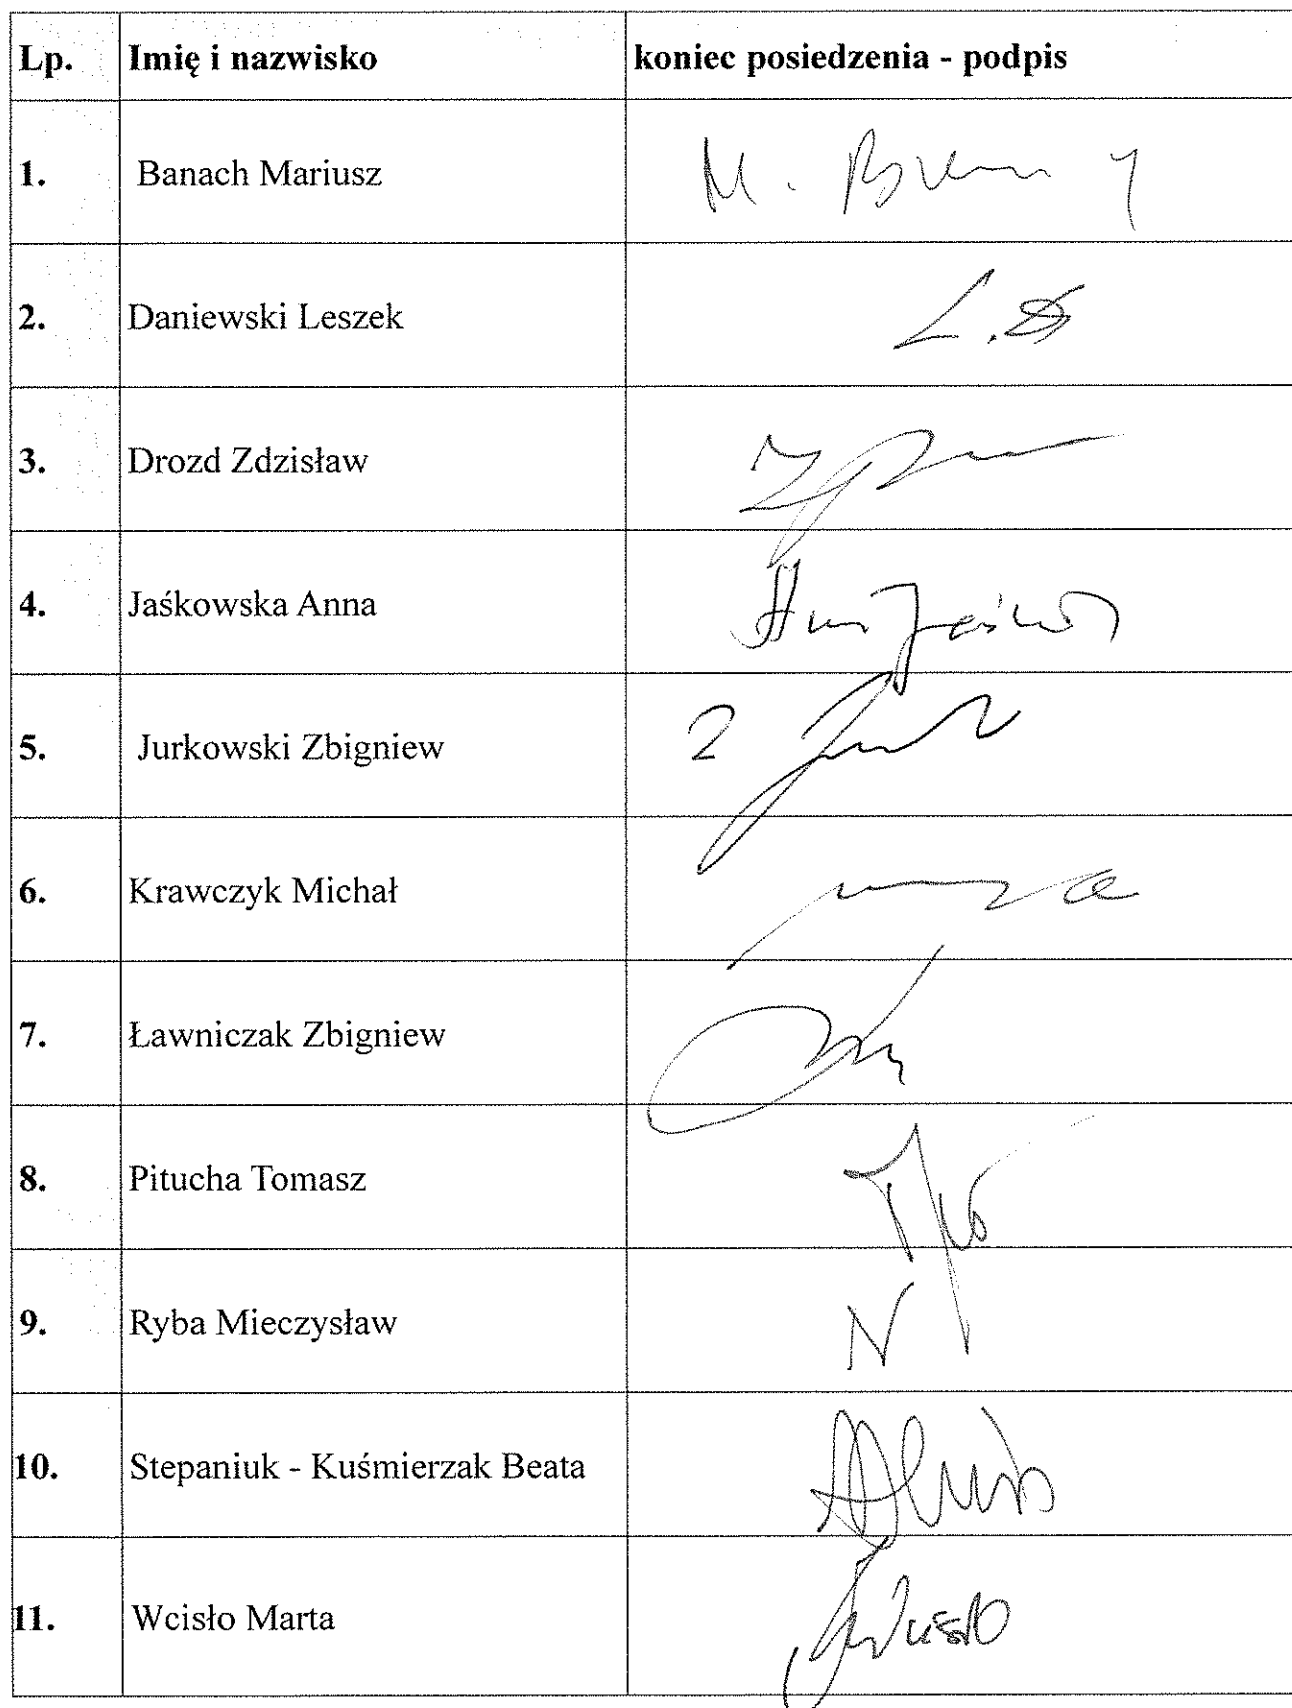 Lp. Imię i nazwisko koniec posiedzenia - podpis
1. Banach Mariusz
2. Daniewski Leszek L.D
3. Drozd Zdzisław
4. Jaśkowska Anna
5. Jurkowski Zbigniew
6. Krawczyk Michał
7. Ławniczak Zbigniew
8. Pitucha Tomasz
9. Ryba Mieczysław N
10. Stepaniuk - Kuśmierzak Beata
11. Wcisło Marta